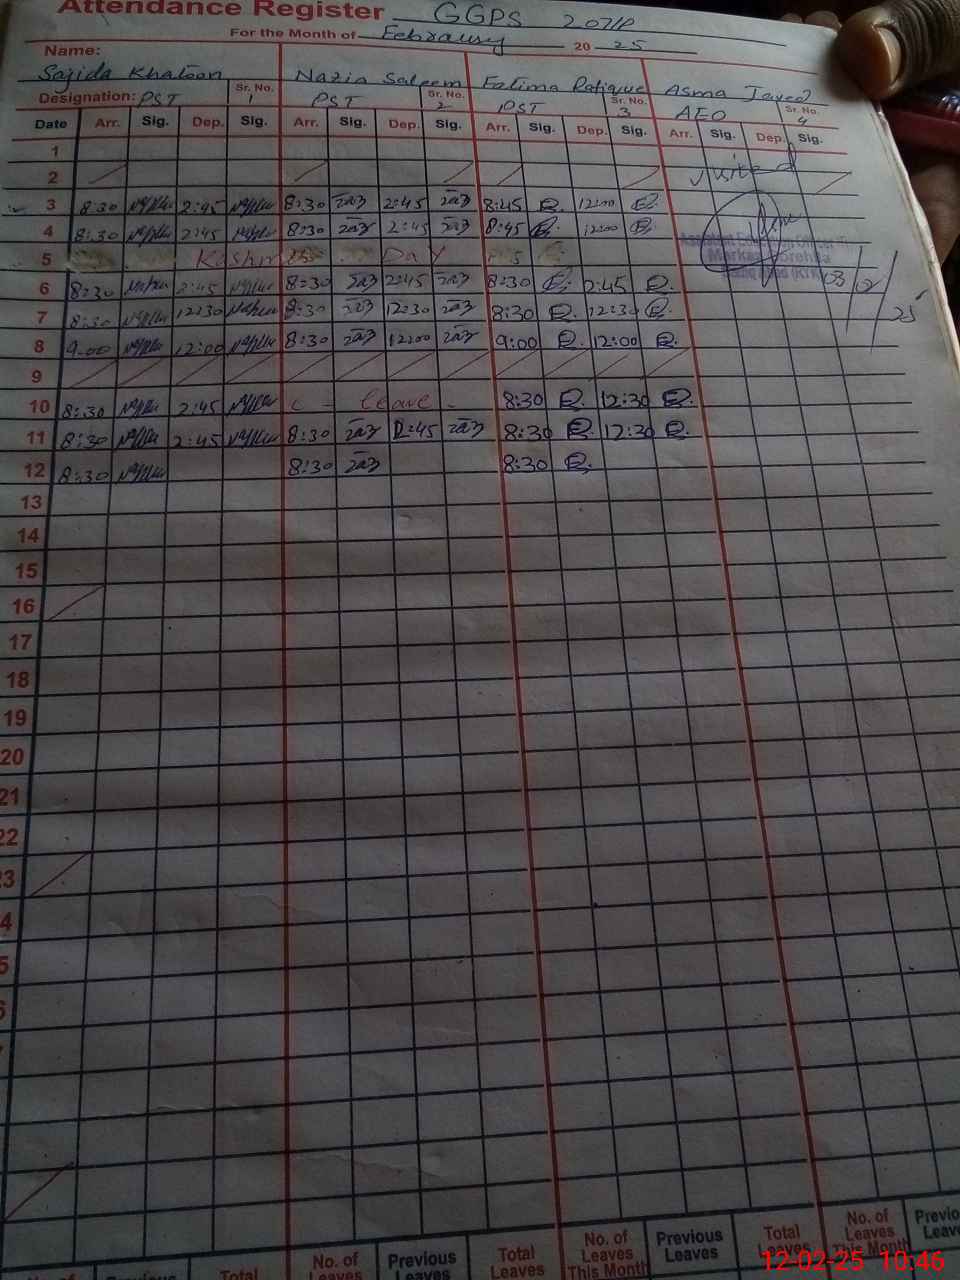 Attendance Register GGPS 207/P
For the Month of Februaury 20 25
Name:
Sajida Khatoon Nazia Saleem Fatima Rafique Asma Javed
Designation: PST Sr. No. 1 PST Sr. No. 2 PST Sr. No. 3 AEO Sr. No. 4
Date Arr. Sig. Dep. Sig. Arr. Sig. Dep. Sig. Arr. Sig. Dep. Sig. Arr. Sig. Dep. Sig.
1
2 Visited
3 8:30 2:45 8:30 2:45 8:45 12:00
4 8:30 2:45 8:30 2:45 8:45 12:00
5 Kashmir Day
6 8:30 2:45 8:30 2:45 8:30 2:45 03/2/25
7 8:30 12:30 8:30 12:30 8:30 12:30
8 9:00 12:00 8:30 12:00 9:00 12:00
9
10 8:30 2:45 leave 8:30 12:30
11 8:30 2:45 8:30 2:45 8:30 12:30
12 8:30 8:30 8:30
13
14
15
16
17
18
19
20
21
22
23
4
5
6
No. of Leaves Previous Leaves Total Leaves No. of Leaves This Month Previous Leaves Total Leaves No. of Leaves This Month
Previous Total
12-02-25 10:46